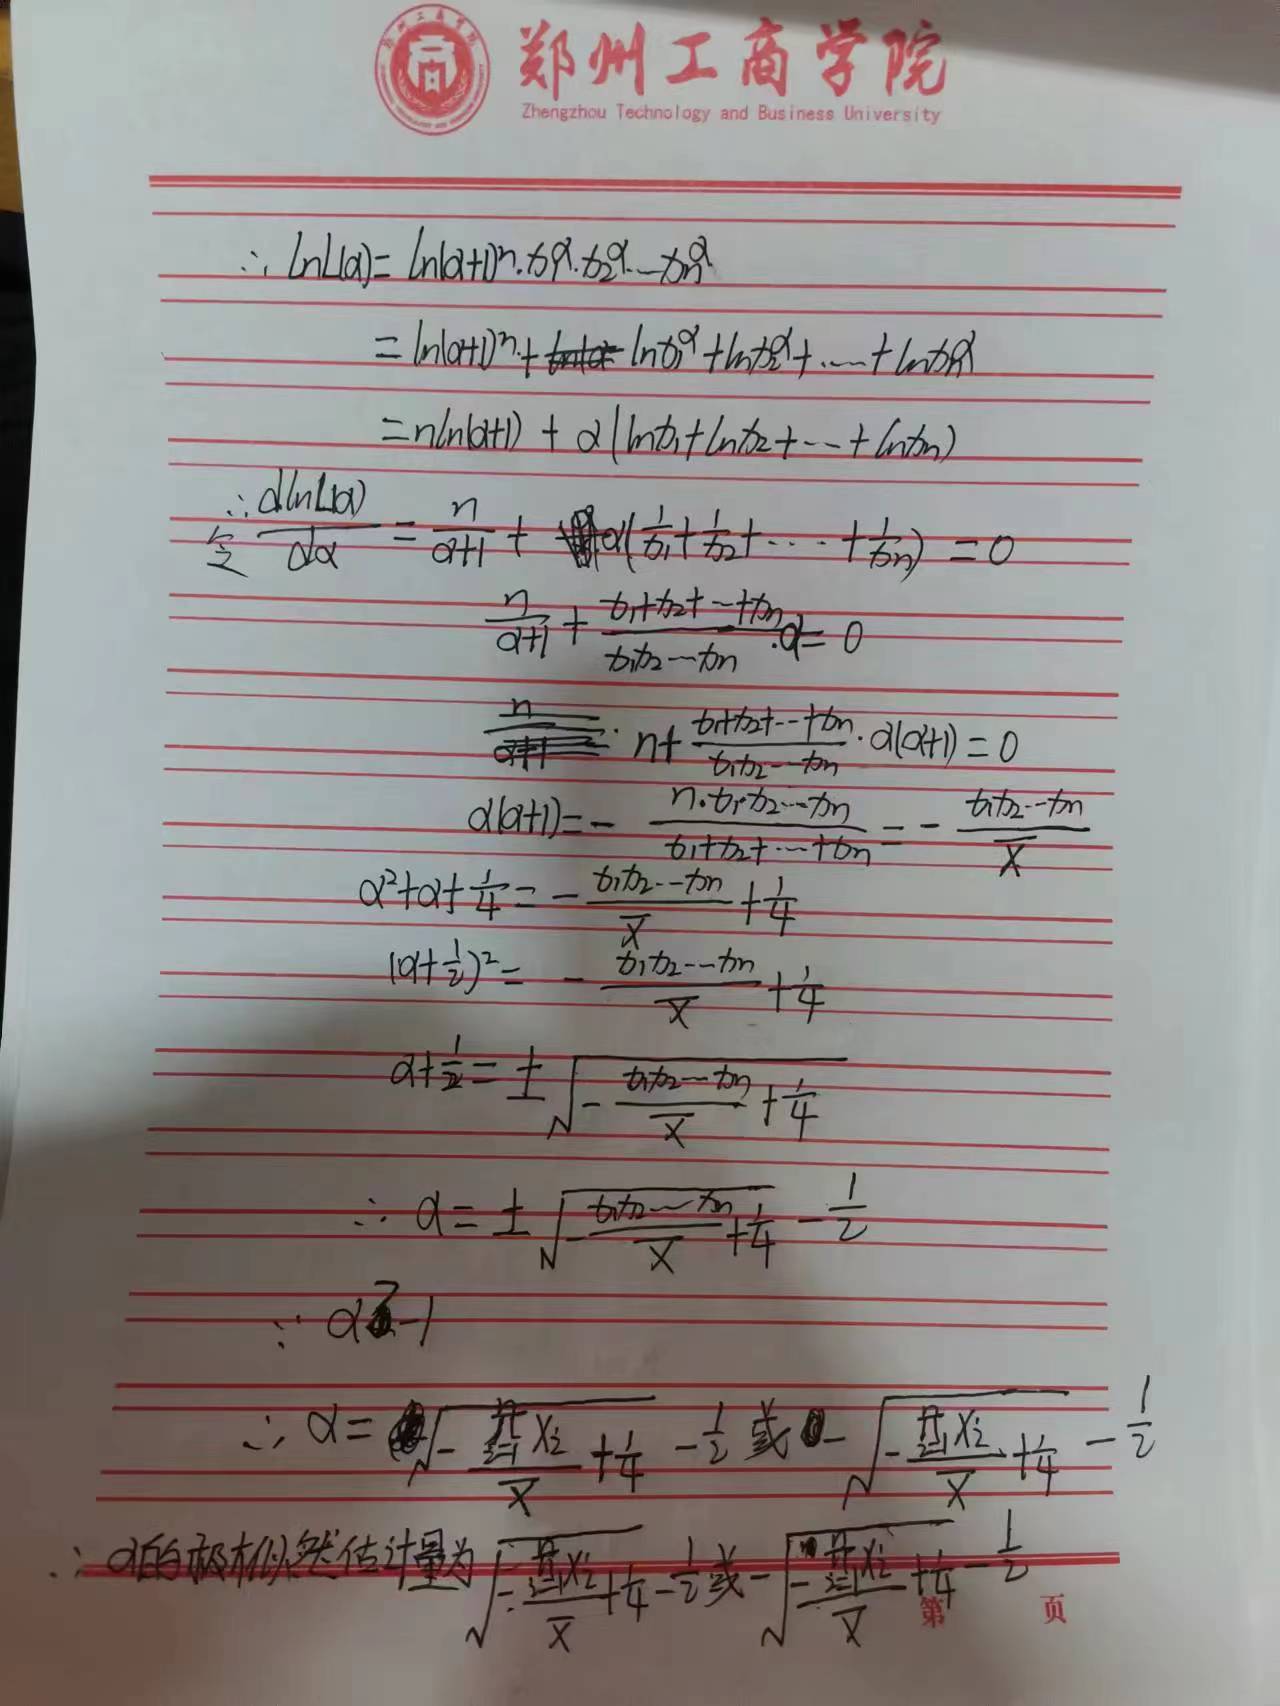 郑州工商学院
Zhengzhou Technology and Business University
∴ lnL(α) = ln(α+1)ⁿ·x₁^α·x₂^α·…xₙ^α
= ln(α+1)ⁿ + lnx₁^α + lnx₂^α + …… + lnxₙ^α
= nln(α+1) + α(lnx₁+lnx₂+…+lnxₙ)
∴令 dlnL(α)/dα = n/(α+1) + α(1/x₁+1/x₂+…+1/xₙ) = 0
n/(α+1) + (x₁+x₂+…+xₙ)/(x₁x₂…xₙ)·α = 0
n + (x₁+x₂+…+xₙ)/(x₁x₂…xₙ)·α(α+1) = 0
α(α+1) = - (n·x₁·x₂…xₙ)/(x₁+x₂+…+xₙ) = - (x₁x₂…xₙ)/X̄
α²+α+1/4 = - (x₁x₂…xₙ)/X̄ + 1/4
(α+1/2)² = - (x₁x₂…xₙ)/X̄ + 1/4
α+1/2 = ±√(-(x₁x₂…xₙ)/X̄ + 1/4)
∴ α = ±√(-(x₁x₂…xₙ)/X̄ + 1/4) - 1/2
∵ α -1
∴ α = √(-(∏ⁿᵢ₌₁Xᵢ)/X̄ + 1/4) - 1/2 或 -√(-(∏ⁿᵢ₌₁Xᵢ)/X̄ + 1/4) - 1/2
∴ α的极大似然估计量为 √(-(∏ⁿᵢ₌₁Xᵢ)/X̄ + 1/4) - 1/2 或 -√(-(∏ⁿᵢ₌₁Xᵢ)/X̄ + 1/4) - 1/2
第 页